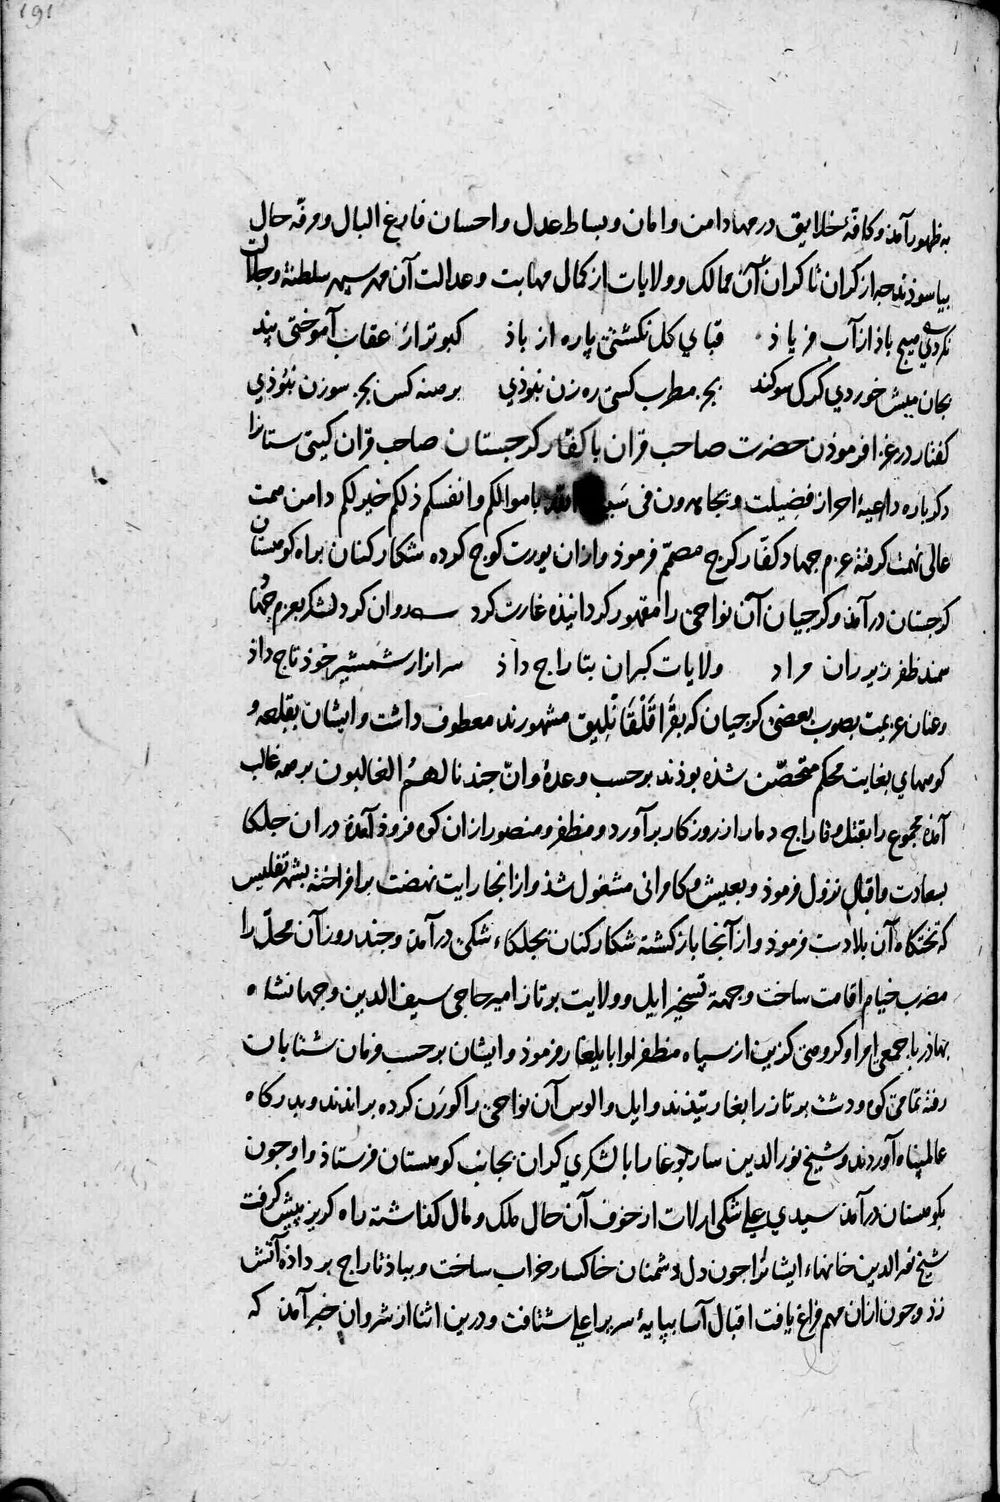 ١٩١
به ظهور آمد و کافّهٔ خلایق در مهاد امن و امان و بساط عدل و احسان فارغ البال و مرفّه حال
بیاسوذند جه از کران تا کران آن ممالک و ولایات از کمال مهابت و عدالت آن سپهر سلطنة و جلالت
نکردی هیچ باذ از آب فریاذ قبای کل نکشتی پاره از باذ کبوتر را ز عقاب آموختی پند
بجان میش خوردی کرک سوکند بجز مطرب کسی ره زن نبوذی برهنه کس بجز سوزن نبوذی
کفتار در غزا فرموذن حضرت صاحب قران با کفّار کرجستان صاحب قران کیتی ستانرا
دکرباره داعیهٔ احراز فضیلت و تجاهدون فی سبیل الله باموالکم وانفسکم ذلکم خیر لکم دامن همت
عالی نهمت کرفته عزم جهاد کفّار کرج مصمّم فرموذ و ازان یورت کوج کرده شکار کنان براه کوهستان
کرجستان درآمد و کرجیان آن نواحی را مقهور کردانیذه غارت کرد روان کرد لشکر بعزم جهاد
سمند ظفر زیر ران مراد ولایات کبران بتاراج داذ سرانرا ز شمشیر خوذ تاج داذ
و عنان عزیمت بصوب بعضی کرجیان که بقرا قلقانلیق مشهورند معطوف داشت و ایشان بقلعه و
کوههای بغایت محکم متحصّن شذه بوذند بر حسب وعدهٔ وانّ جندنا لهم الغالبون بر همه غالب
آمذه مجموع را بقتل و تاراج دمار از روزکار برآورد و مظفر و منصور ازان کوه فروذ آمذه دران جلکا
بسعادت و اقبال نزول فرموذ و بعیش و کامرانی مشغول شذ و از انجا رایت نهضت برافراخته بشهر تفلیس
که تختکاه آن بلادست فرموذ و از آنجا بازکشته شکار کنان بجلکاء شکی درآمد و جند روز آن محلّ را
مضرب خیام اقامت ساخت و جهة تسخیر ایل و ولایت برتاز امیر حاجی سیف الدین و جهانشاه
بهاذر با جمعی امرا و کروهی کزین از سپاه مظفر لوا بایلغار فرموذ و ایشان بر حسب فرمان شتابان
رفته تمامی کوه و دشت برتاز را بغارتیذند و ایل و الوس آن نواحی را کوران کرده براندند و بدرکاه
عالمپناه آوردند و شیخ نور الدین ساربوغا را با لشکری کران بجانب کوهستان فرستاذ و او جون
بکوهستان درآمد سیدی علی شکی ارلات از خوف آن حال ملک و مال کذاشته راه کریز پیش کرفت
شیخ نور الدین خانهاء ایشانرا جون دل دشمنان خاکسار خراب ساخت و بباذ تاراج برداذه آتش
زد و جون ازان مهم فراغ یافت اقبال آسا بپایهٔ سریر اعلی شتافت و درین اثنا از شروان خبر آمد که